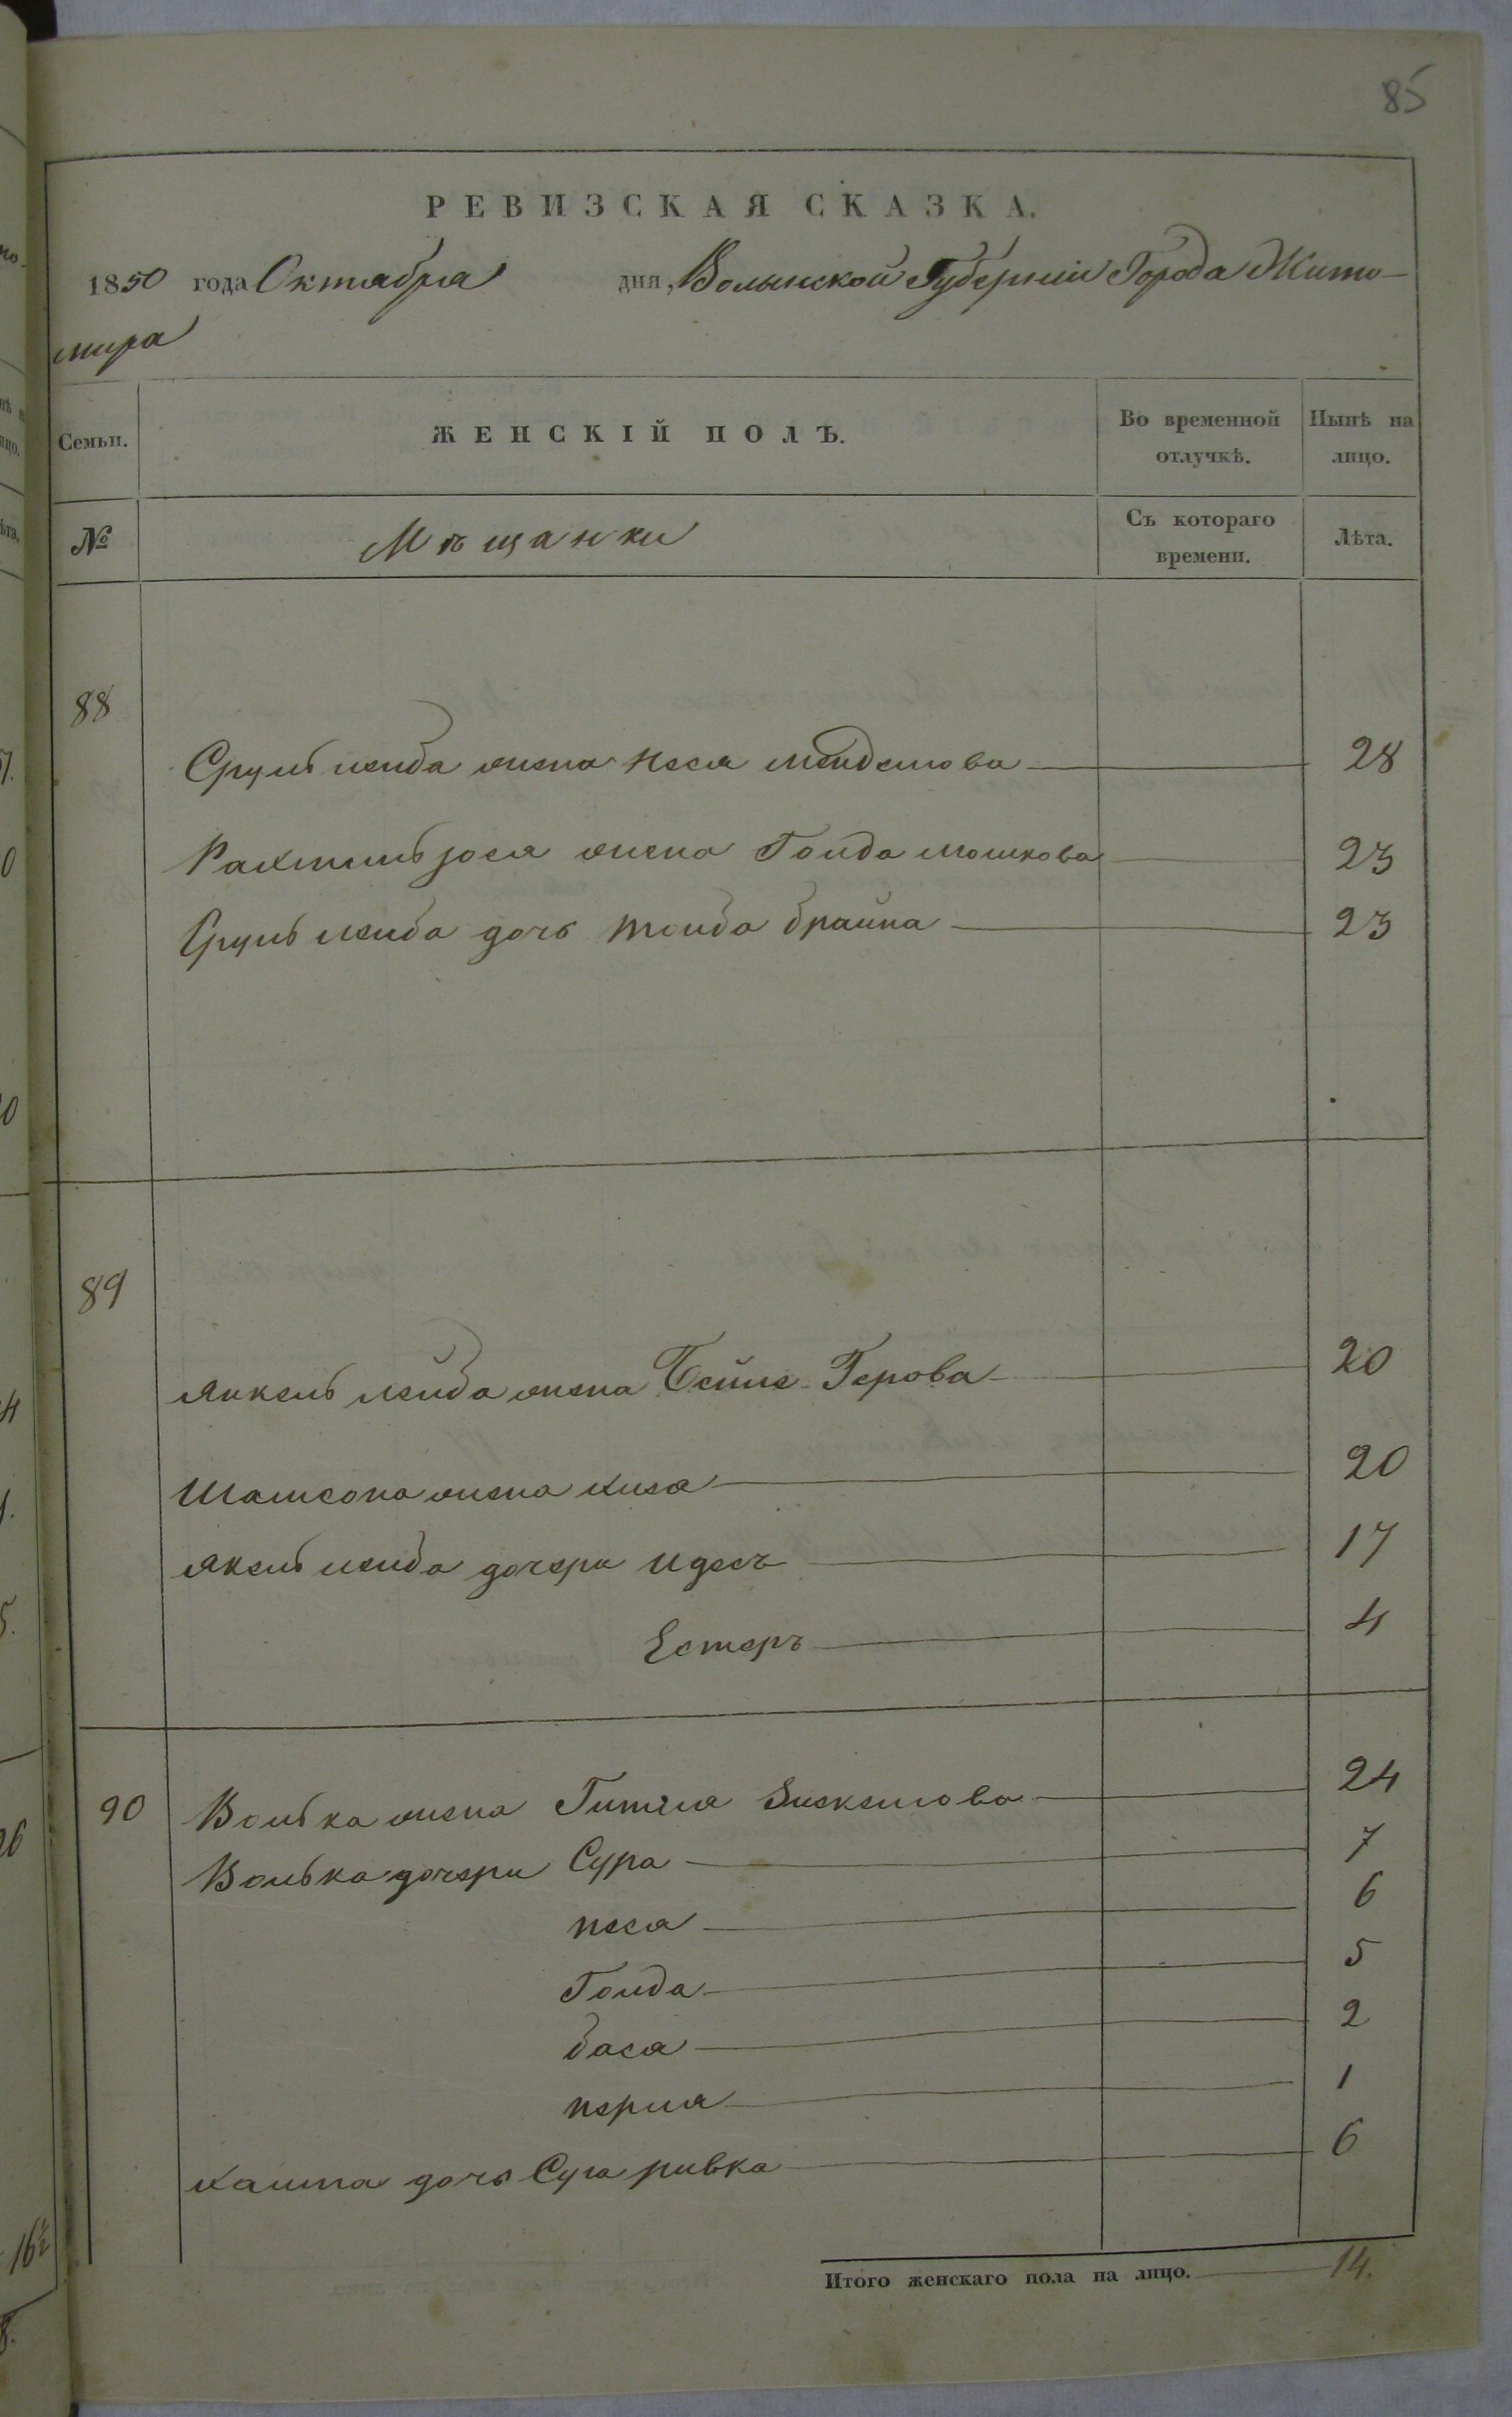 85
РЕВИЗСКАЯ СКАЗКА.
1850 года Октября дня, Волынской Губерніи Города Жито-
мира
Семьи. ЖЕНСКІЙ ПОЛЪ. Во временной отлучкѣ. Нынѣ на лицо.
№ Мѣщанки Съ котораго времени. Лѣта.
88
Сруль лейба жена Неся мендемова 28
Рахмиль жена Голда мошкова 23
Сруль лейба дочь брайна 23
89
Янкель лейба жена Бейле Герова 20
Шамсона жена Хиза 20
Якель лейба дочери Идесъ 17
Естеръ 4
90 Волька жена Гитля 24
Волька дочери Сура 7
песя 6
Голда 5
бася 2
перля 1
дочь Сура ривка 6
Итого женскаго пола на лицо. 14.